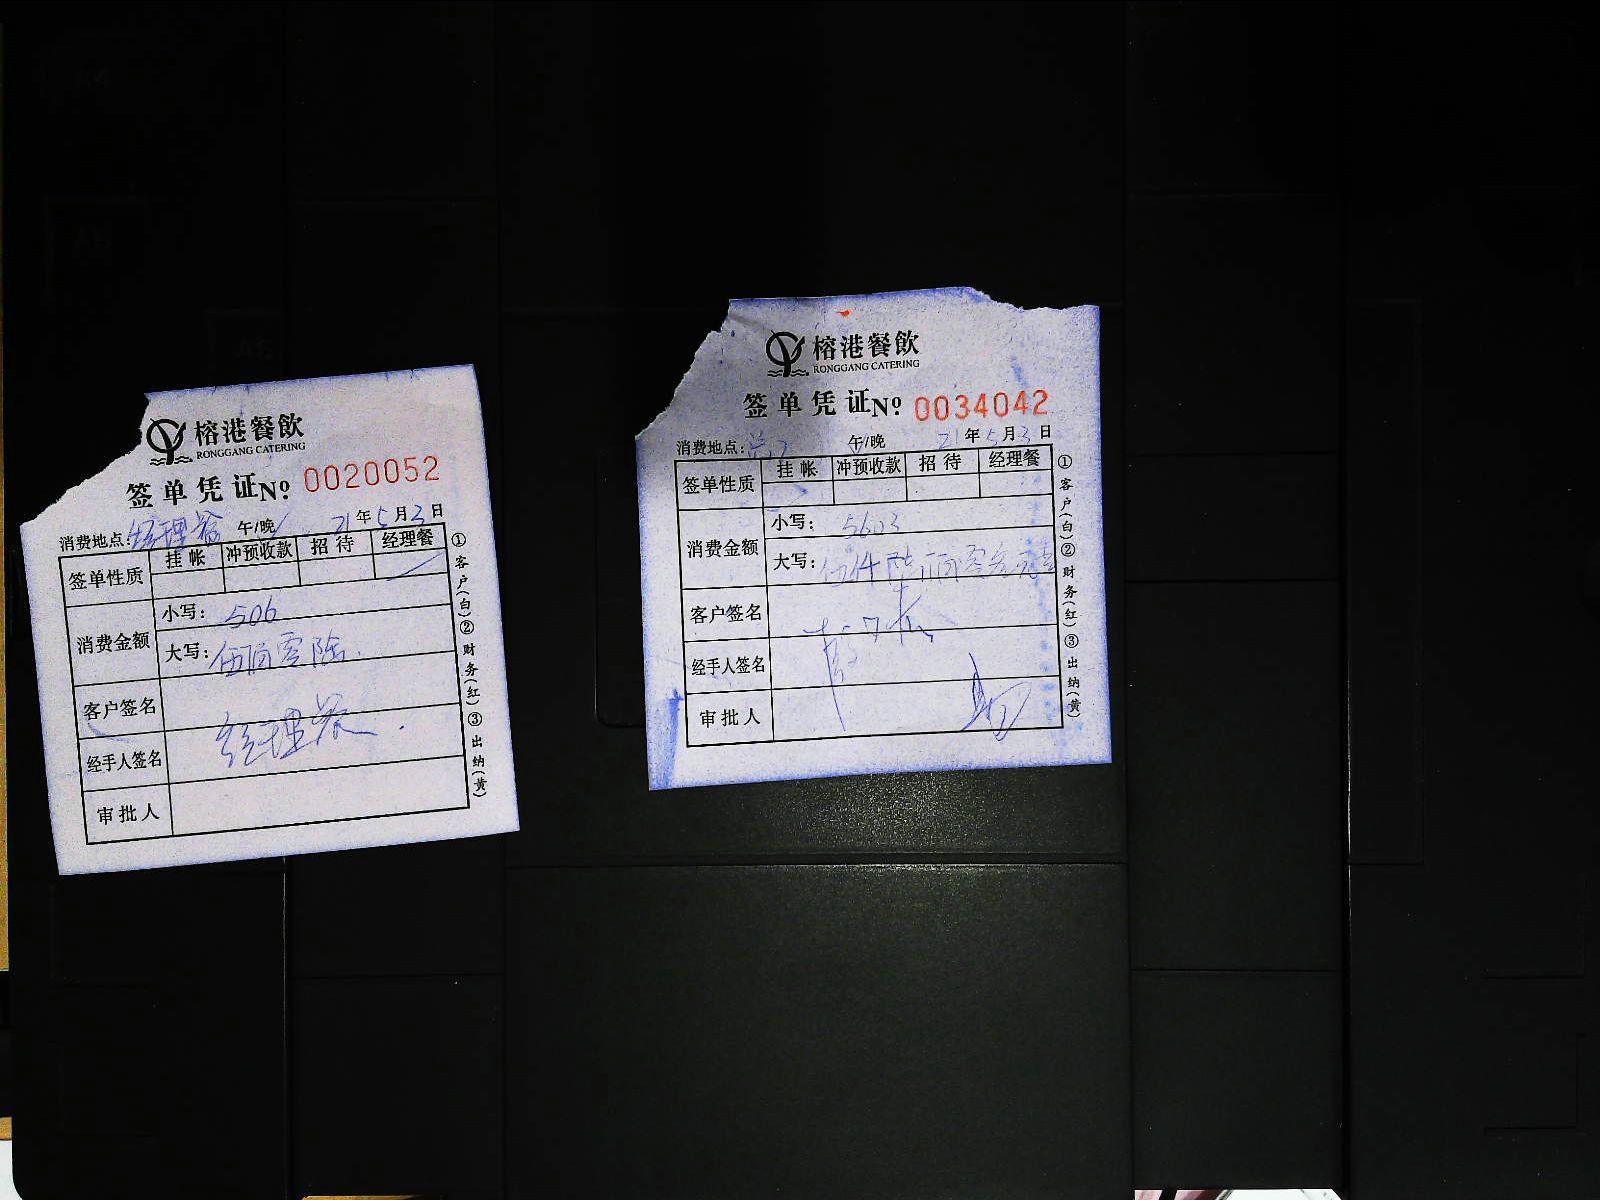 榕港餐飲
RONGGANG CATERING
签单凭证№ 0020052
消费地点: 经理餐 午/晚 21年5月3日
签单性质 挂帐 冲预收款 招待 经理餐
消费金额 小写: 506
大写: 伍佰零陆.
客户签名
经手人签名 经理餐
审批人
①客户(白)②财务(红)③出纳(黄)
榕港餐飲
RONGGANG CATERING
签单凭证№ 0034042
消费地点: 午/晚 21年5月3日
签单性质 挂帐 冲预收款 招待 经理餐
消费金额 小写: 5603
大写: 伍仟陆佰零叁元
客户签名
经手人签名
审批人
①客户(白)②财务(红)③出纳(黄)